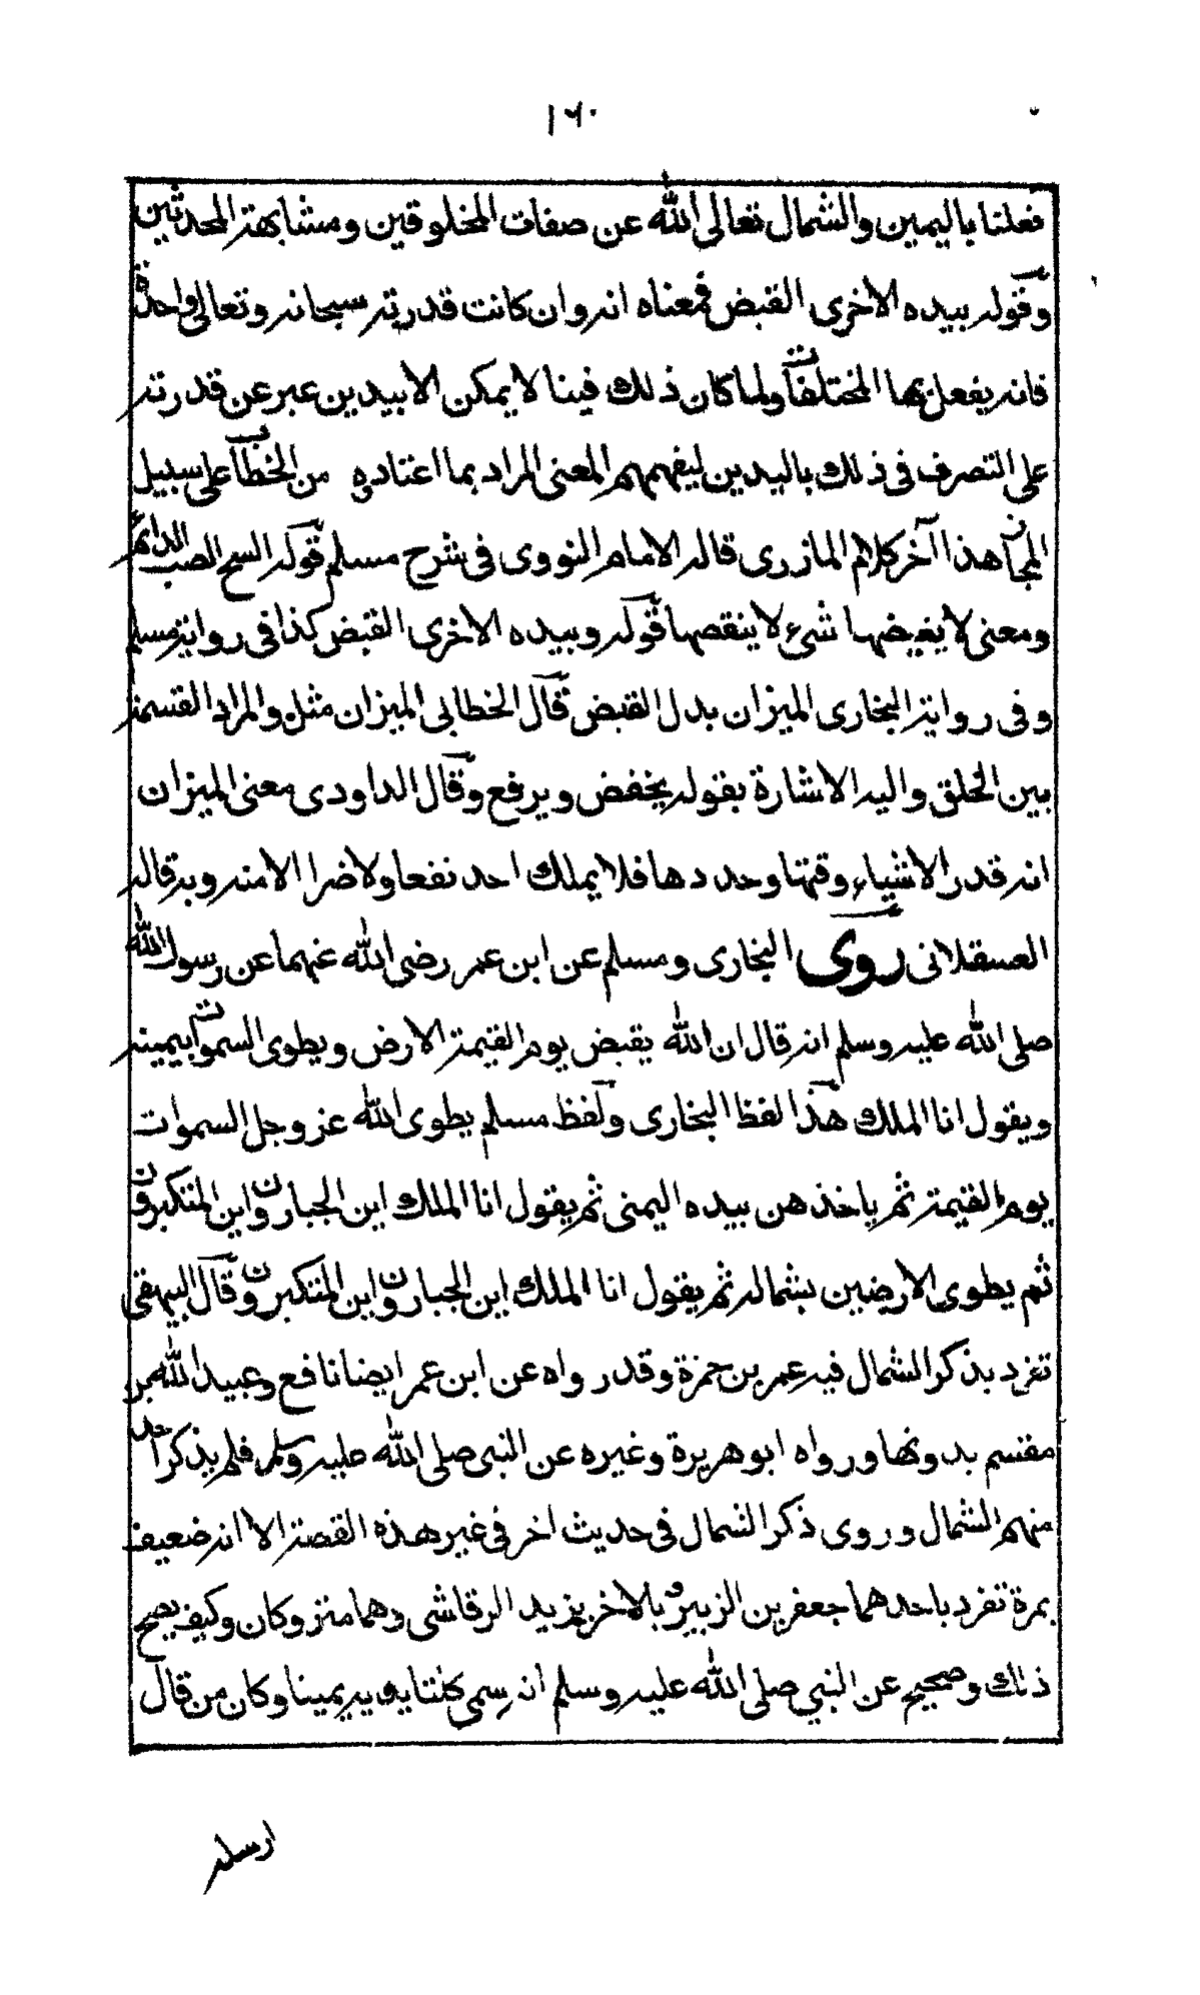 ١٦٠
فعلنا باليمين والشمال تعالى الله عن صفات المخلوقين ومشابهة المحدثين
وقوله بيده الاخرى القبض فمعناه انه وان كانت قدرته سبحانه وتعالى واحدة
فانه يفعل بها المختلفات ولما كان ذلك فينا لا يمكن الا بيدين عبر عن قدرته
على التصرف فى ذلك باليدين ليفهمهم المعنى المراد بما اعتاده من الخطاب على سبيل
المجاز هذا آخر كلام المازرى قاله الامام النووى فى شرح مسلم قوله السح الصب الدائم
ومعنى لا يغيضها شىء لا ينقصها قوله وبيده الاخرى القبض كذا فى رواية مسلم
وفى رواية البخارى الميزان بدل القبض قال الخطابى الميزان مثل والمراد القسمة
بين الخلق واليه الاشارة بقوله يخفض ويرفع وقال الداودى معنى الميزان
انه قدر الاشياء وقتها وحددها فلا يملك احد نفعا ولا ضرا الا منه وبه قاله
العسقلانى روى البخارى ومسلم عن ابن عمر رضى الله عنهما عن رسول الله
صلى الله عليه وسلم انه قال ان الله يقبض يوم القيمة الارض ويطوى السموات بيمينه
ويقول انا الملك هذا لفظ البخارى ولفظ مسلم يطوى الله عز وجل السموات
يوم القيمة ثم ياخذ هن بيده اليمنى ثم يقول انا الملك اين الجبارون واين المتكبرون
ثم يطوى الارضين بشماله ثم يقول انا الملك اين الجبارون واين المتكبرون وقال البيهقى
تفرد بذكر الشمال فيه عمر بن حمزة وقد رواه عن ابن عمر ايضا نافع وعبيد الله بن
مقتسم بدونها ورواه ابو هريرة وغيره عن النبى صلى الله عليه وسلم فلم يذكر احد
منهم الشمال وروى ذكر الشمال فى حديث اخر فى غير هذه القصة الا انه ضعيف
بمرة تفرد باحدهما جعفر بن الزبير وبالاخر يزيد الرقاشى وهما متروكان وكيف يصح
ذلك وصحيح عن النبي صلى الله عليه وسلم انه سمى كلتا يديه يمينا وكان من قال
ارسله